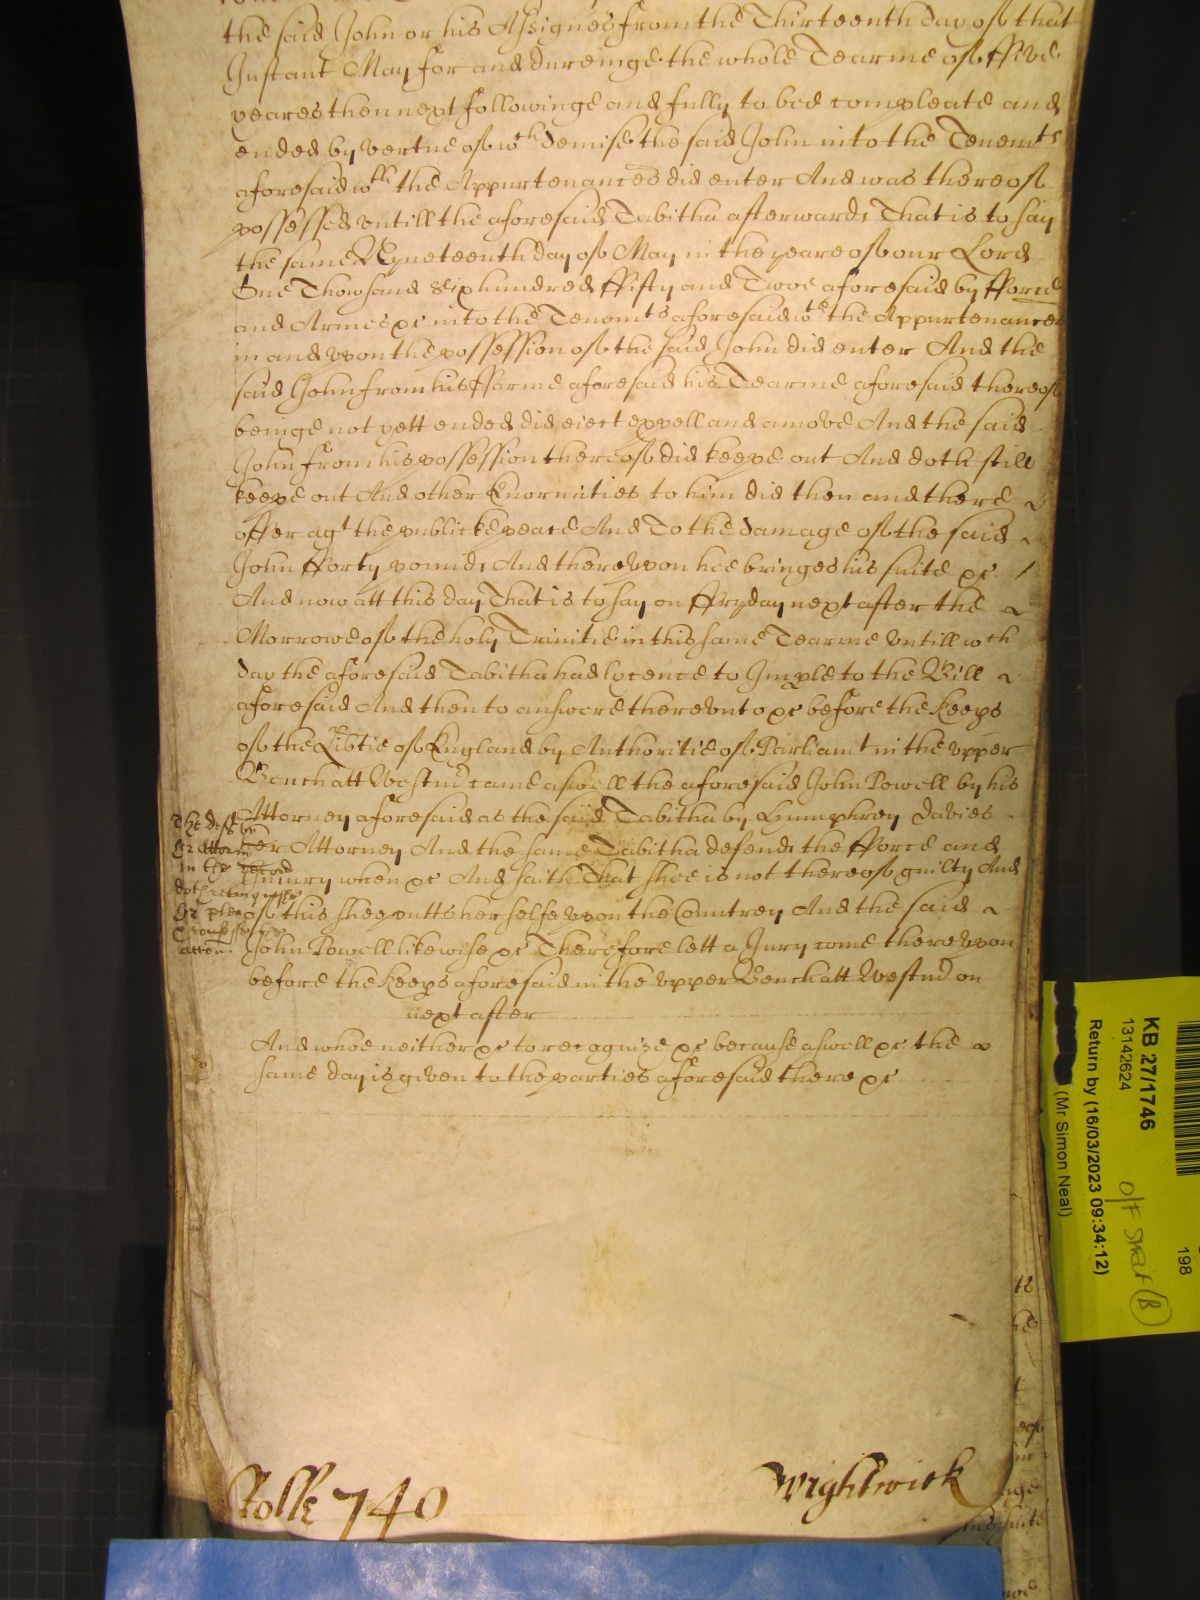 the said John or his Assignes from the Thirteenth day of that
Instant May for and dureinge the whole Tearme of ffive
yeares then next followinge and fully to bee compleate and
ended by vertue of wch demise the said John into the Tenemts
aforesaid wth the Appurtenances did enter And was thereof
possessed untill the aforesaid Tabitha afterwards That is to say
the same Nyneteenth day of May in the yeare of our Lord
One Thowsand Six hundred ffifty and Twoe aforesaid by fforce
and Armes &c into the Tenemts aforesaid wth the Appurtenances
in and upon the possession of the said John did enter And the
said John from his ffarme aforesaid his Tearme aforesaid thereof
beinge not yett ended did eiect expell and amove And the said
John from his possession thereof did keepe out And doth still
keepe out And other Enormities to him did then and there
offer agt the publicke peace And To the damage of the said
John fforty pounds And thereupon hee bringes his suite &c /
And now att this day That is to say on ffryday next after the
Morrowe of the holy Trinitie in this same Tearme untill wch
day the aforesaid Tabitha had lycence to Imple to the Bill
aforesaid And then to answere thereunto &c before the Keeps
of the Libtie of England by Authoritie of Parliamt in the upper
Bench att Westm came aswell the aforesaid John Powell by his
Attorney aforesaid as the said Tabitha by Humphrey Davies
her Attorney And the same Tabitha defends the fforce and
Iniury when &c And saith That shee is not thereof guilty And
of this shee putts her selfe upon the Countrey And the said
John Powell likewise &c Therefore lett a Jury come thereupon
before the Keeps aforesaid in the upper Bench att Westm on
next after
And whoe neither &c to recognize &c because aswell &c the
same day is given to the parties aforesaid there &c
The deft by
her Attorny
in the record
doth relinquish
her plea
Rolle 740
Wightwick
KB 27/1746
13142624
Return by (16/03/2023 09:34:12)
(Mr Simon Neal)
198